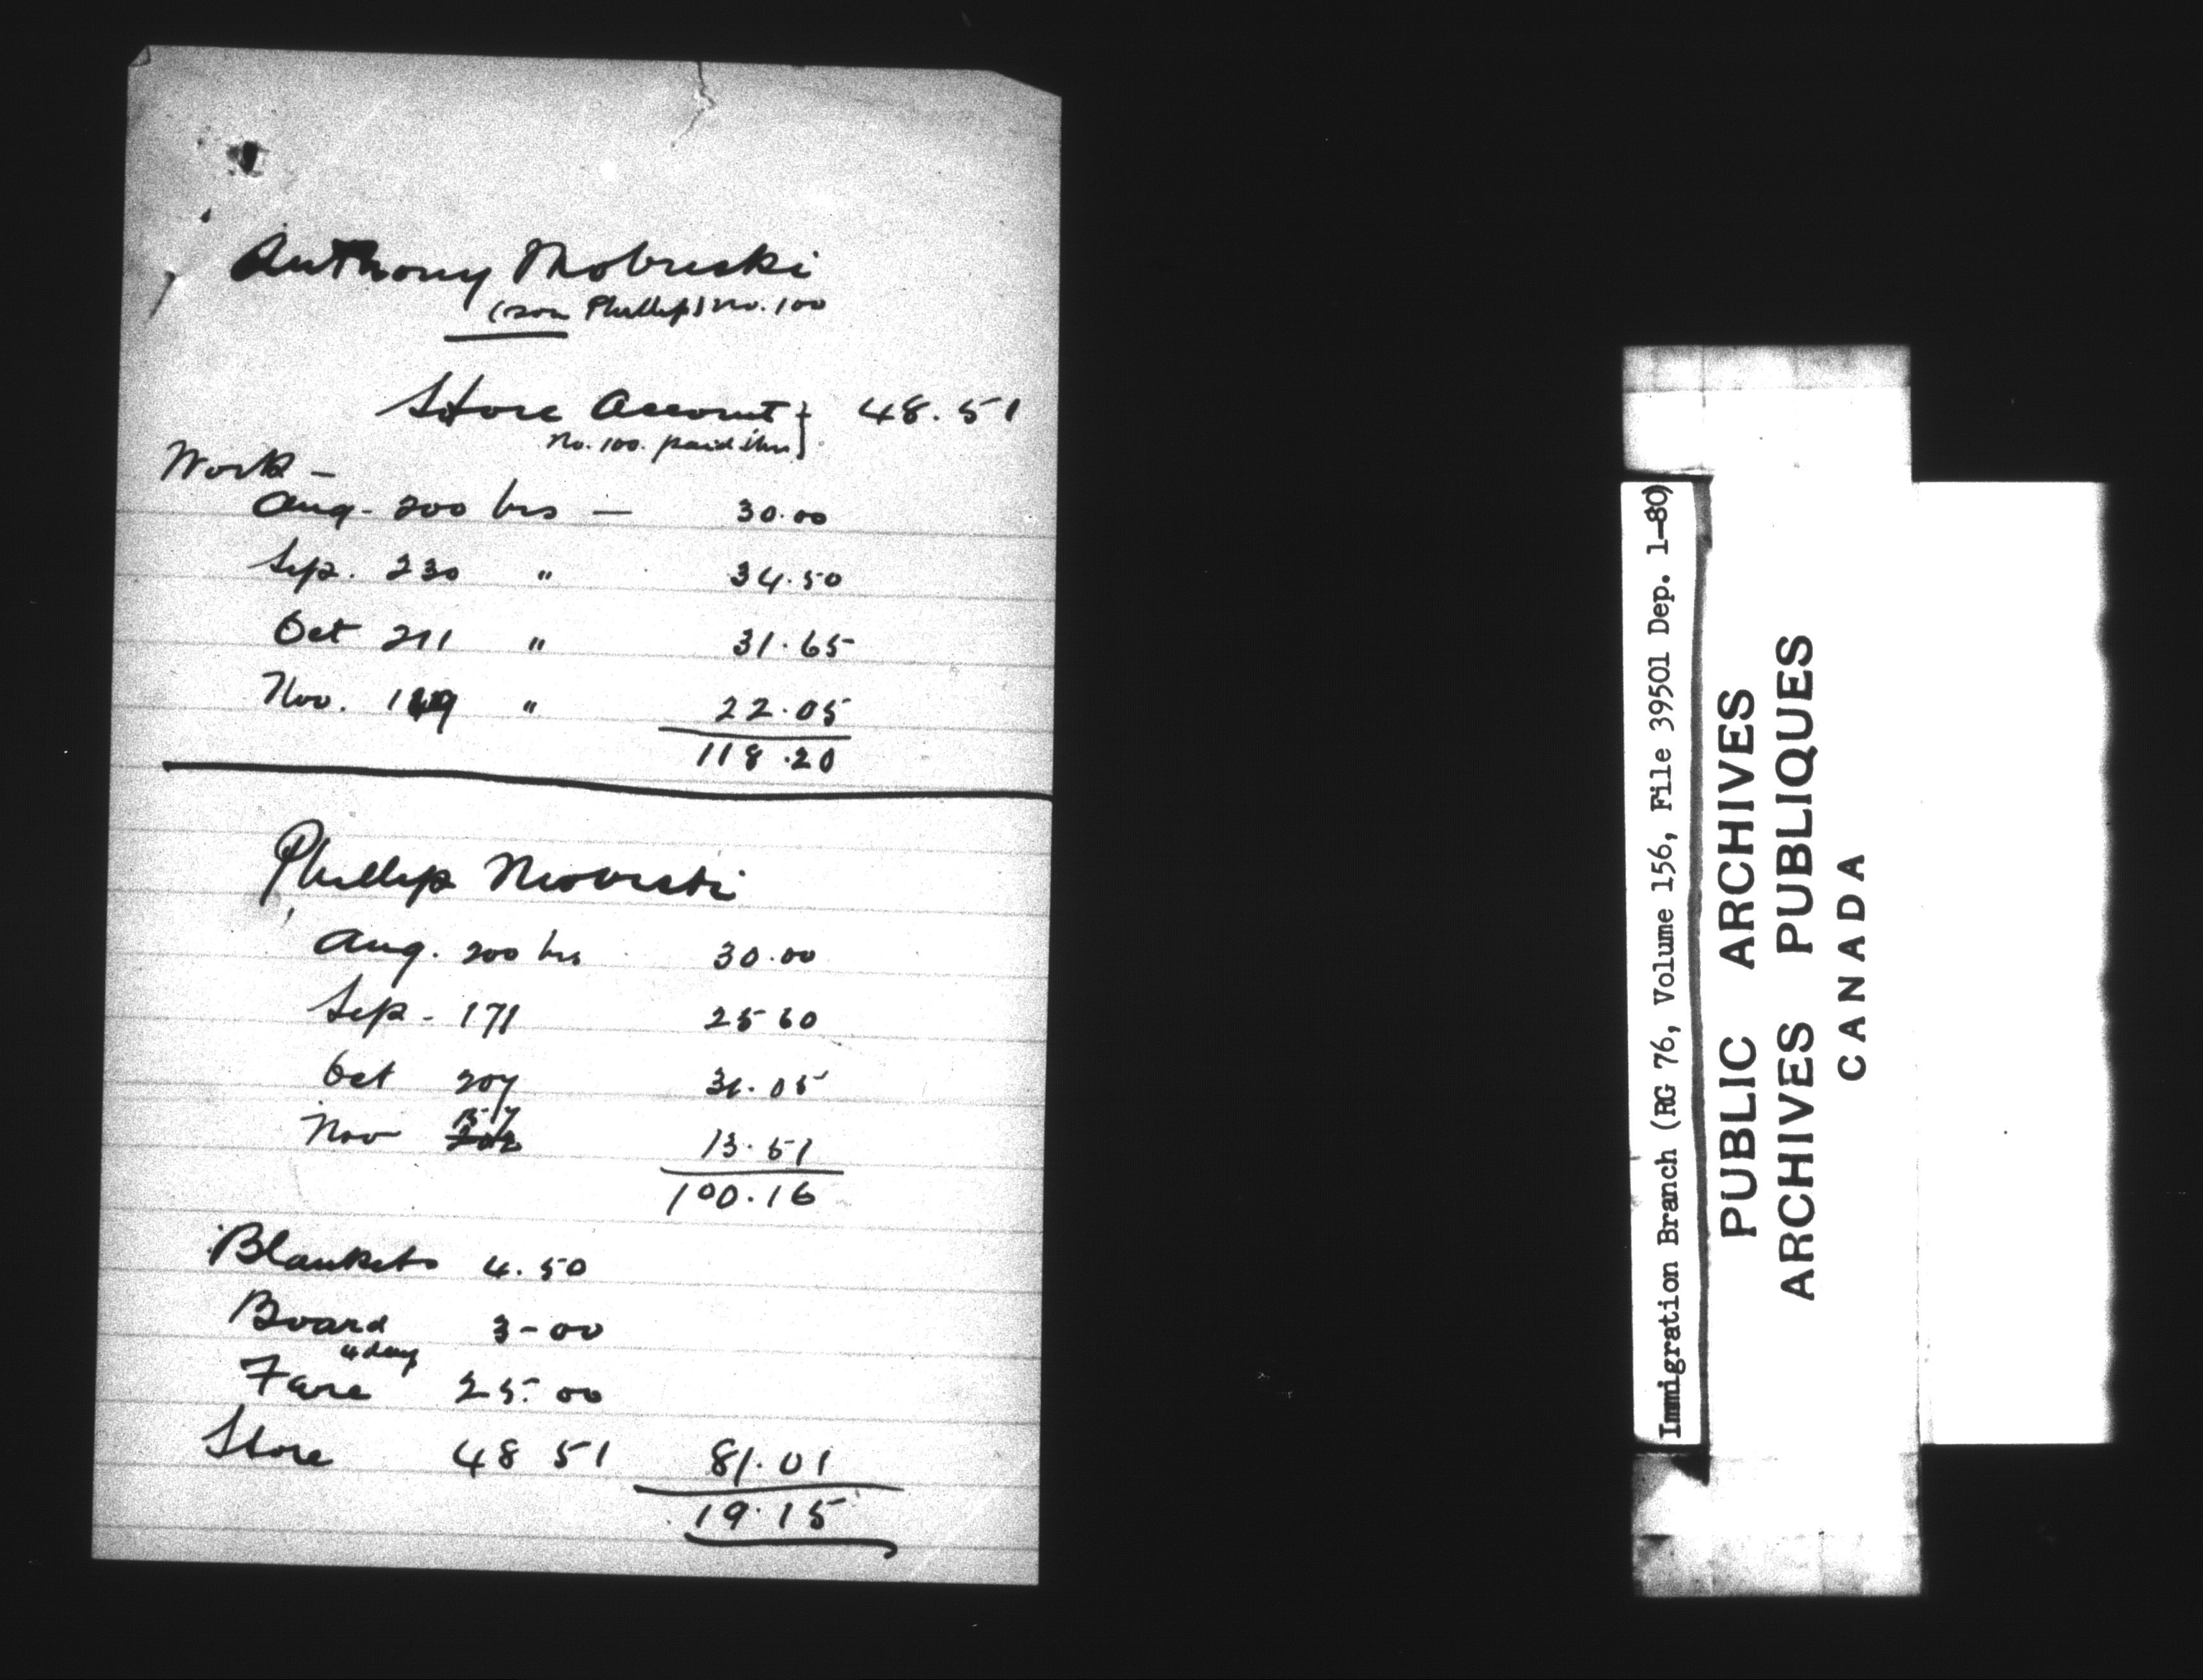 Anthony Mobuski
(son Phillip) no. 100
Store Account } 48.51
No. 100. paid
Work -
Aug - 200 hrs — 30.00
Sep. 230 " 34.50
Oct 211 " 31.65
Nov. 149 " 22.05
118.20
Phillip
Aug. 200 hrs 30.00
Sep - 171 25 60
Oct 207 31.05
157
Nov 202 13.51
100.16
Blankets 4.50
Board 3-00
4 day
Fare 25.00
Store 48 51 81.01
19.15
Immigration Branch (RG 76, Volume 156, File 39501 Dep. 1-80)
PUBLIC ARCHIVES
ARCHIVES PUBLIQUES
CANADA